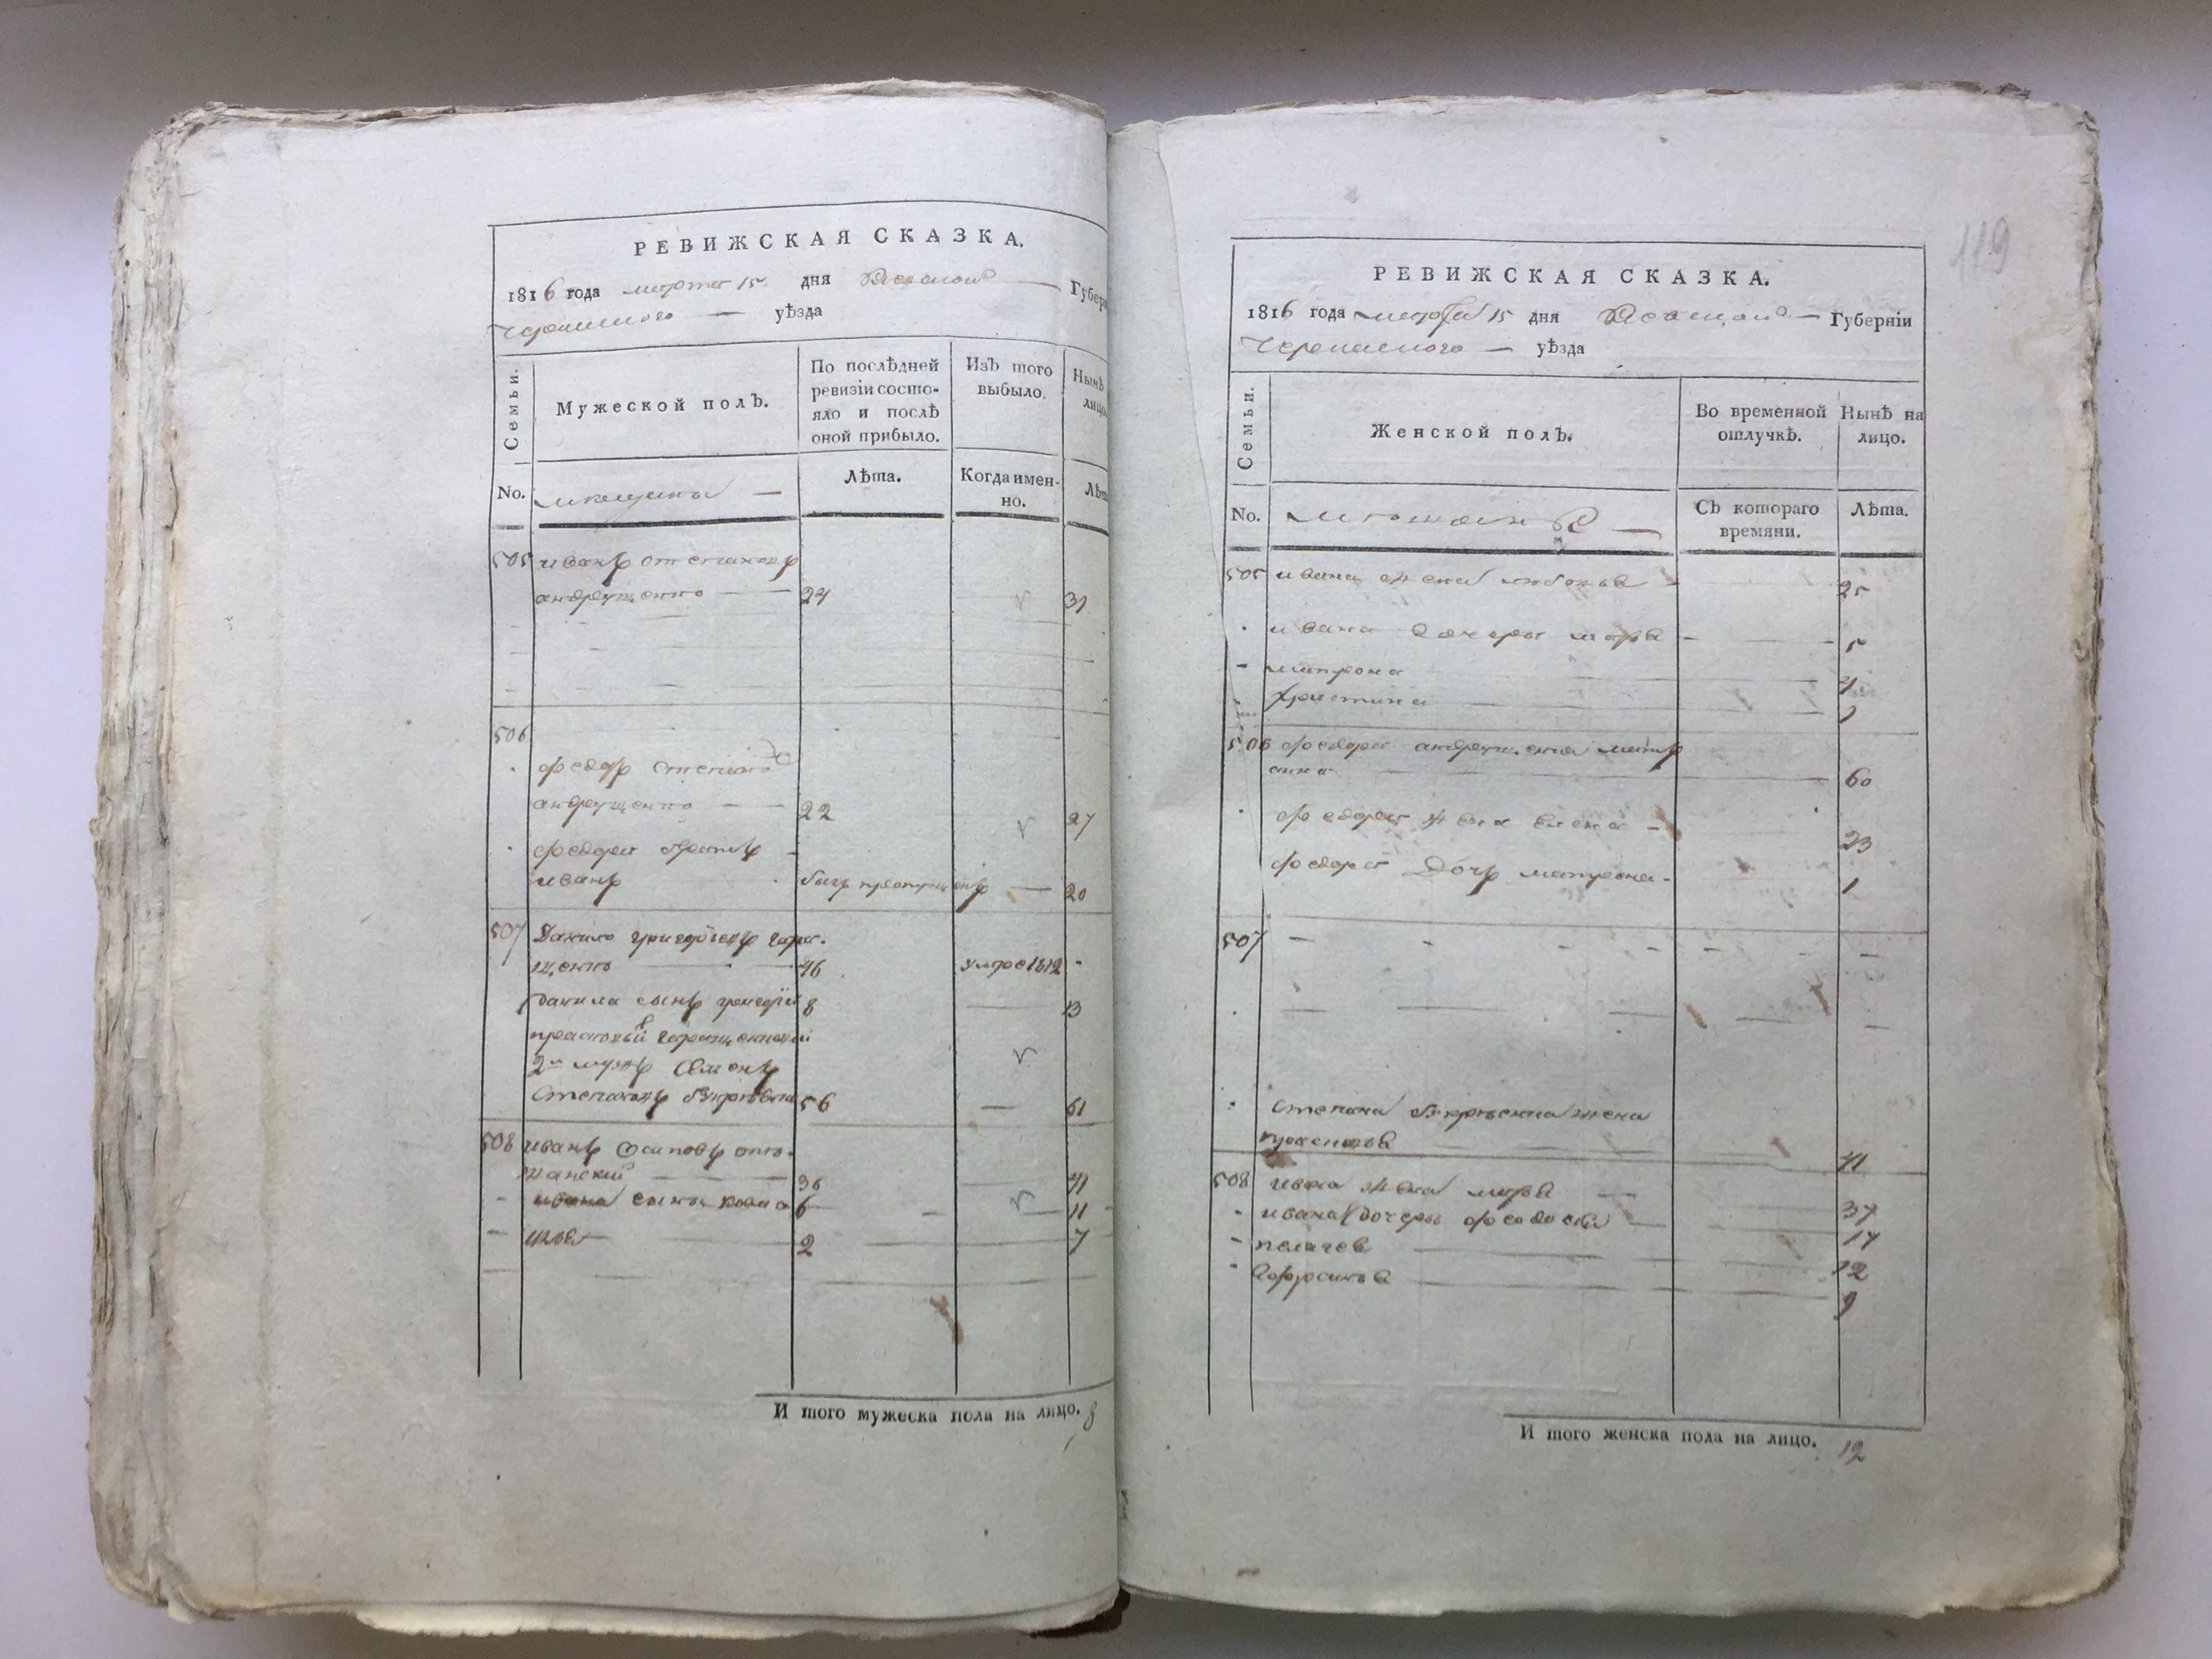 РЕВИЖСКАЯ СКАЗКА.
1816 года марта 15 дня Губерн
уѣзда
Семьи.
Мужеской полЪ.
По послѣдней
ревизіи состо-
яло и послѣ
оной прибыло.
ИзЪ того
выбыло.
НынѢ
лицо
No. мещане
Лѣта.
Когда имен-
но.
Лѣт
505 иванъ степановъ
андрущенко 24 31
506
федоръ степановъ
андрущенко 22 27
федора братъ
иванъ былъ пропущенъ 20
507 Данило григорьевъ гара-
щенко 46 умре 1812
данила сынъ григорій 8 13
2й мужъ
Степановъ 56 61
508 иванъ Осиповъ
жанский 36 41
ивана сынъ 6 11
2 7
И того мужеска пола на лицо. 8
119
РЕВИЖСКАЯ СКАЗКА.
1816 года марта 15 дня Губерніи
Черкаского уѣзда
Семьи.
Женской полЪ.
Во временной
отлучкѣ.
Нынѣ на
лицо.
No. мещанъ
СЪ котораго
времяни.
Лѣта.
505 ивана жена любовь 25
ивана дочери марья 5
матрона 4
христина 1
506 федора андрущенка мать
анна 60
федора жена елена 23
федора Дочь матрона 1
507
степана жена
41
508 ивана жена марья 37
ивана дочери феодосья 14
пелагея 12
Афросинья 9
И того женска пола на лицо. 12